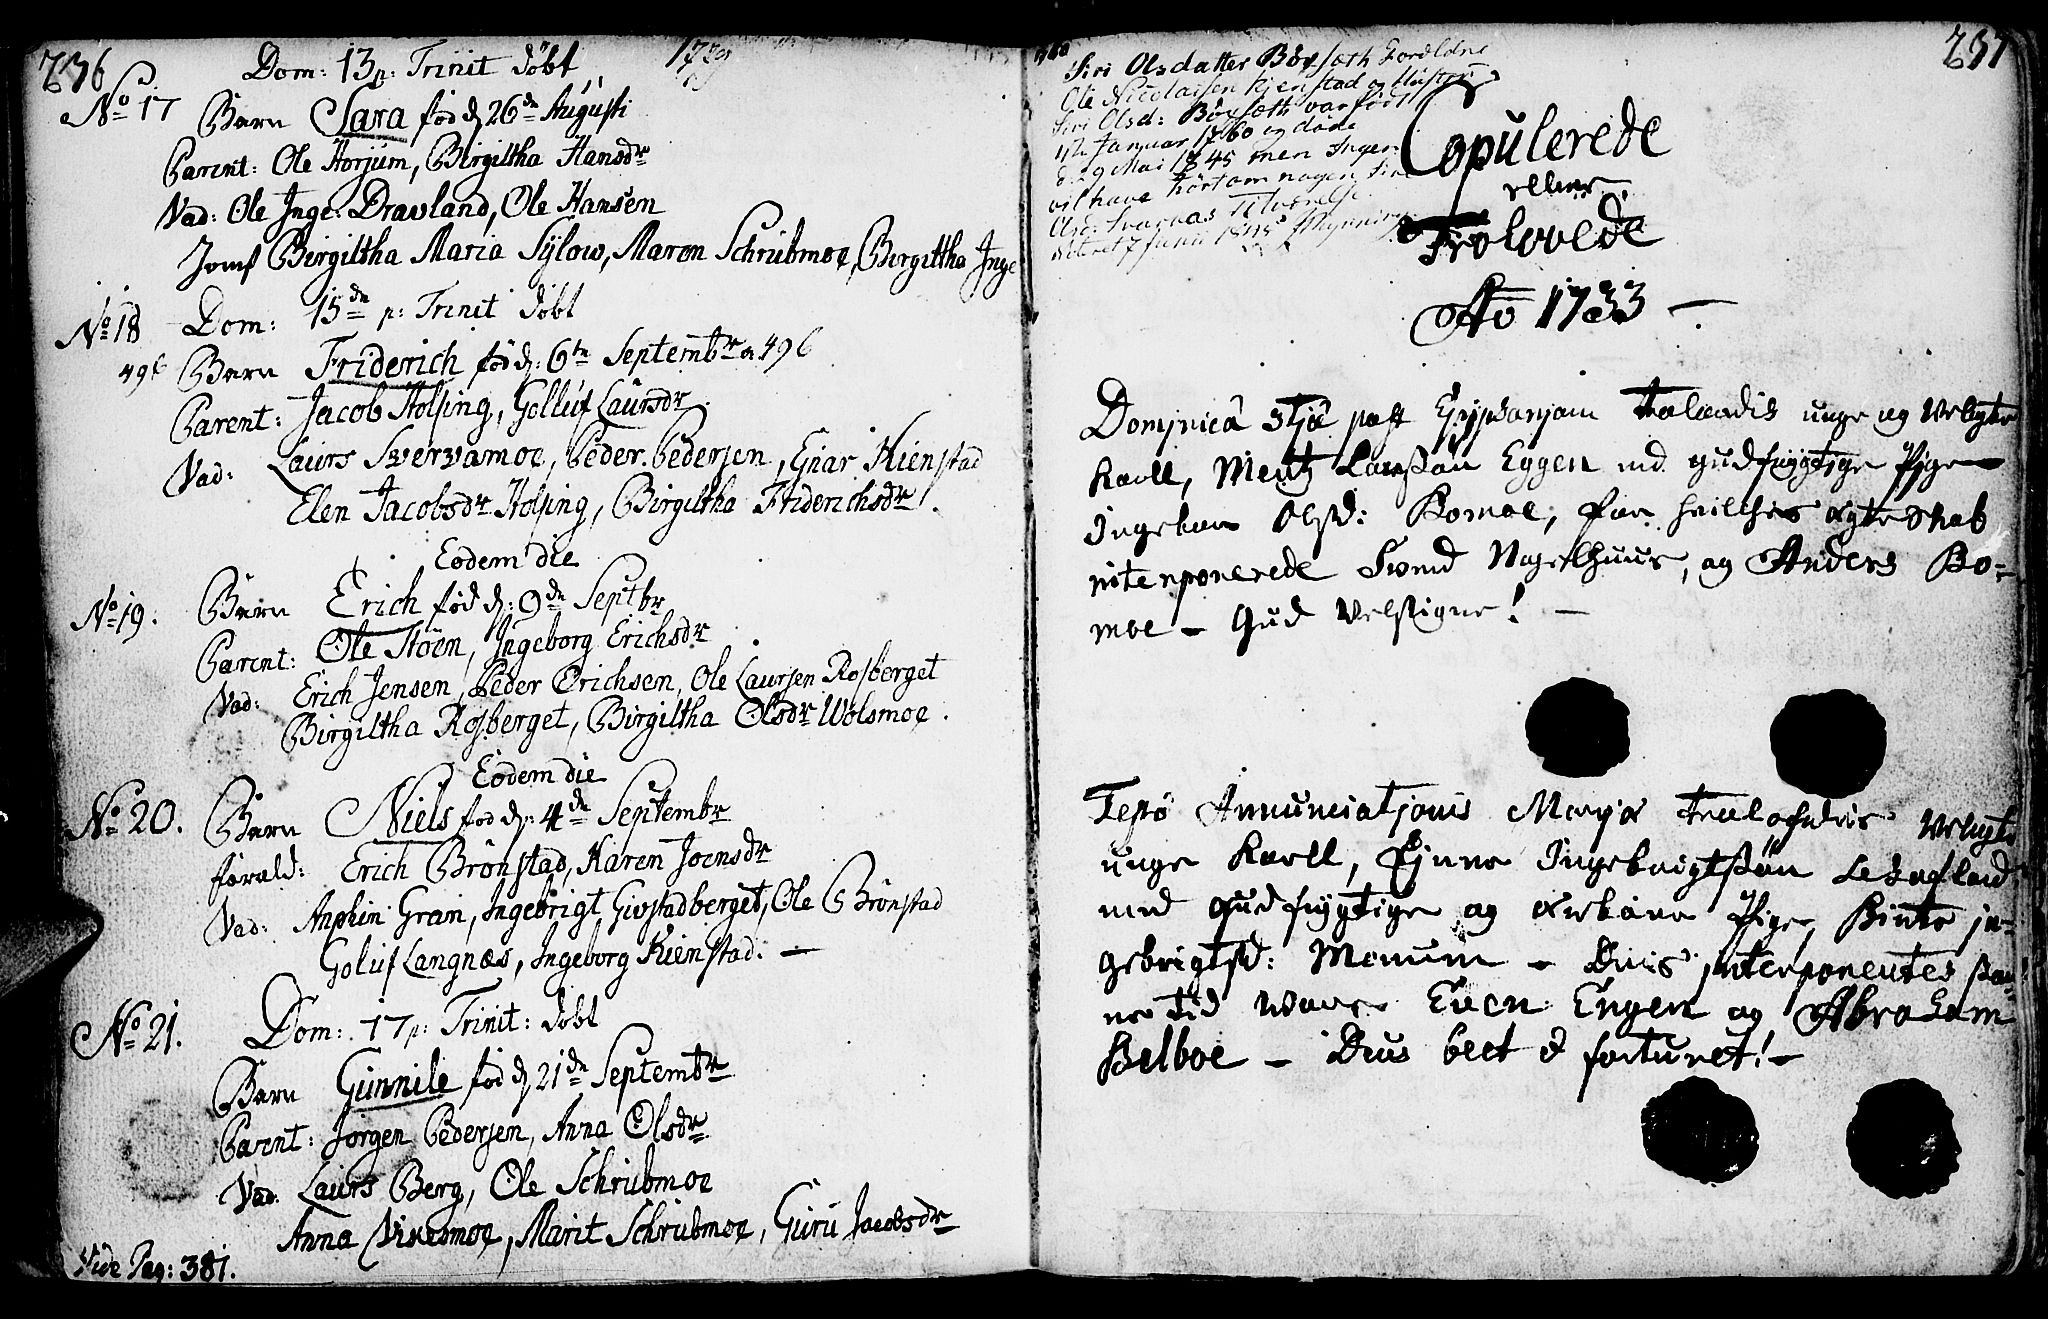 236
Dom: 13 p: Trinit döbt 1779
No 17 Barn Sara fød d 26de Augusti
Parent: Ole Horjum, Birgiltha Hansdr
Vad: Ole Inge: Dravland, Ole Hansen
Jomf Birgiltha Maria Sylow, Maren Schrubmoe, Birgittha Inge
No 18 Dom: 15de p: Trinit döbt
496 Barn Friderich fød d: 6te Septembr a 496
Parent: Jacob Holsing, Golluf Laursdr.
Vad: Laurs Svervamoe, Peder Pedersen, Eliar Kienstad
Elen Jacobsdr Holsing, Birgiltha Friderichsdr.
Eodem die
No 19. Barn Erich fød d: 9de Septbr
Parent: Ole Stöen, Ingeborg Erichsdr
Vad: Erich Jensen, Peder Erichsen, Ole Laursen Rosberget
Birgiltha Rosberget, Birgiltha Olsdr Wolsmoe.
Eodem die
No 20. Barn Niels fød d: 4de Septembr
foræld: Erich Brönstad, Karen Joensdr
Vad: Anphin Gran, Ingebrigt Givstadberget, Ole Brönstad
Goluf Langnæs, Ingeborg Kienstad. —
No 21. Dom: 17 p: Trinit: döbt
Barn Gunnile fød d 21de Septembr
Parent: Jörgen Pedersen, Anna Olsdr
Vad. Laurs Berg, Ole Schrubmoe
Anna Vixesmoe, Marit Schrubmoe, Guru Jacobsdr
Vide Pag: 381.
237
Siri Olsdatter Böysæth Foreldre
Ole Nicolaisen Kjenstad og Hustru
Siri Olsd: Böysæth var født
Januar 1760 og döde
d. 29 Mai 1845 men Ingen
vil have hørt om nogen Siri
Olsd:
7 Junii 1845
Copulerede
eller
Trolovede
Ao 1733 —
Dominicâ 3tiâ post Epiphaniam trolovedis unge og Velagte
Karll, Mentz Larssøn Eggen med gudfrygtige Pige
Ingebor Olsd: Bomoe, for hvilchis ægteskab
interponerede Svend Nagelhuus, og Anders Bo-
moe — Gud Velsigne! —
Festo Annunciationis Mariæ trolofvedis Velagte
unge Karll, Finne Ingebrigtssøn Lehafland
med gudfrygtige og ærbare Pige, Binte In-
gebrigtsd: Momum — Dnis interponentes
tid vare Even Engen og Abraham
Belboe — Deus beet & fortunet! —